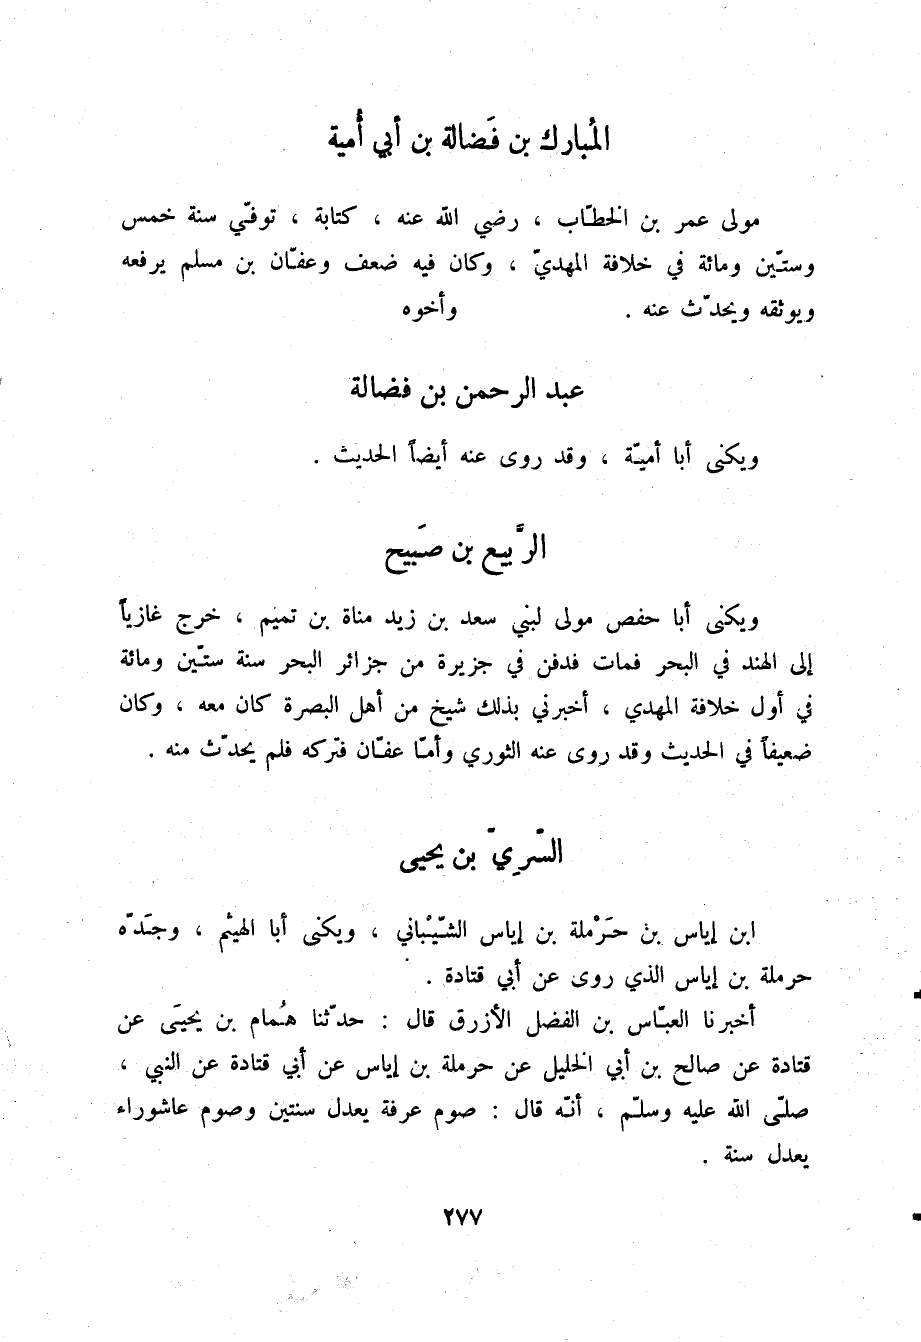 المُبارك بن فَضالة بن أبي أُمية
مولى عمر بن الخطّاب ، رضي الله عنه ، كتابة ، توفّي سنة خمس
وستّين ومائة في خلافة المهديّ ، وكان فيه ضعف وعفّان بن مسلم يرفعه
ويوثقه ويحدّث عنه . وأخوه
عبد الرحمن بن فضالة
ويكنى أبا أميّة ، وقد روى عنه أيضاً الحديث .
الرَّبيع بن صَبيح
ويكنى أبا حفص مولى لبني سعد بن زيد مناة بن تميم ، خرج غازياً
إلى الهند في البحر فمات فدفن في جزيرة من جزائر البحر سنة ستّين ومائة
في أول خلافة المهدي ، أخبرني بذلك شيخ من أهل البصرة كان معه ، وكان
ضعيفاً في الحديث وقد روى عنه الثوري وأمّا عفّان فتركه فلم يحدّث منه .
السّريّ بن يحيى
ابن إياس بن حَرْملة بن إياس الشّيْباني ، ويكنى أبا الهيثم ، وجَدّه
حرملة بن إياس الذي روى عن أبي قتادة .
أخبرنا العبّاس بن الفضل الأزرق قال : حدّثنا هُمام بن يحيَى عن
قتادة عن صالح بن أبي الخليل عن حرملة بن إياس عن أبي قتادة عن النبي ،
صلّى الله عليه وسلّم ، أنّه قال : صوم عرفة يعدل سنتين وصوم عاشوراء
يعدل سنة .
٢٧٧